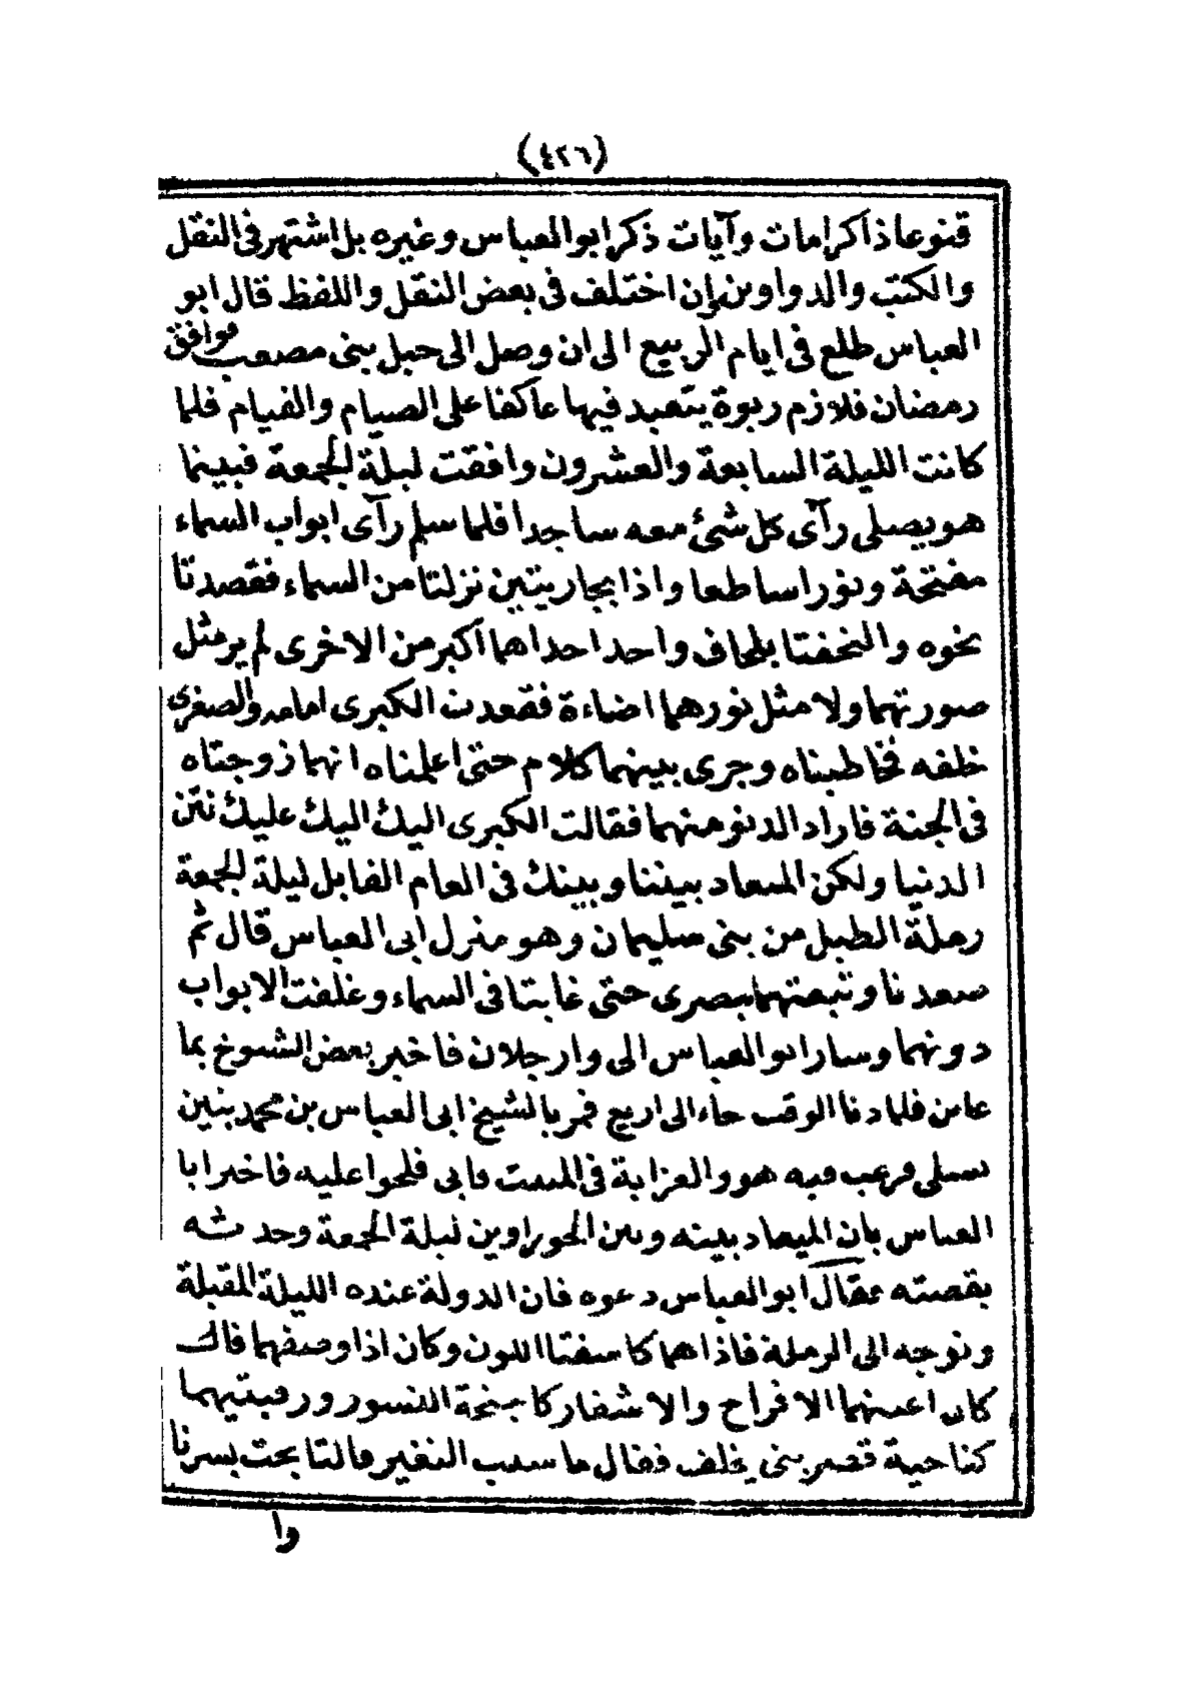 (٤٢٦)
قنوعا ذا كرامات وآيات ذكر ابو العباس وغيره بل اشتهر فى النقل
والكتب والدواوين وإن اختلف فى بعض النقل واللفظ قال ابو
العباس طلع فى ايام الربيع الى ان وصل الى جبل بنى مصعب فوافق
رمضان فلازم ربوة يتعبد فيها عاكفا على الصيام والقيام فلما
كانت الليلة السابعة والعشرون وافقت ليلة الجمعة فبينما
هو يصلى رآى كل شئ معه ساجدا فلما سلم رآى ابواب السماء
مفتحة ونورا ساطعا واذا بجاريتين نزلتا من السماء فقصدتا
نحوه والتحفتا بلحاف واحد احداهما اكبر من الاخرى لم ير مثل
صورتهما ولا مثل نورهما اضاءة فقعدت الكبرى امامه والصغرى
خلفه فخاطبناه وجرى بينهما كلام حتى اعلمناه انهما زوجتاه
فى الجنة فاراد الدنو منهما فقالت الكبرى اليك اليك عليك نتن
الدنيا ولكن الميعاد بيننا وبينك فى العام القابل ليلة الجمعة
رملة الطبل من بنى سليمان وهو منزل ابى العباس قال ثم
صعدتا وتبعتهما ببصرى حتى غابتا فى السماء وغلقت الابواب
دونهما وسار ابو العباس الى وارجلان فاخبر بعض الشيوخ بما
عاين فلما دنا الوقت جاء الى اريغ فمر بالشيخ ابى العباس بن محمد بنين
يسلى فرغب فيه هو والعزابة فى المبيت فابى فلحوا عليه فاخبر ابا
العباس بان الميعاد بينه وبين الحوراوين ليلة الجمعة وحدثه
بقصته فقال ابو العباس دعوه فان الدولة عنده الليلة المقبلة
وتوجه الى الرملة فاذا هما كاسفتا اللون وكان اذا وصفهما قال
كان اعينهما الافراح والاشفار كاجنحة النسور ورقبتيهما
كناحية قصر بنى يخلف فقال ما سبب التغير قالتا بحت بسرنا
وا